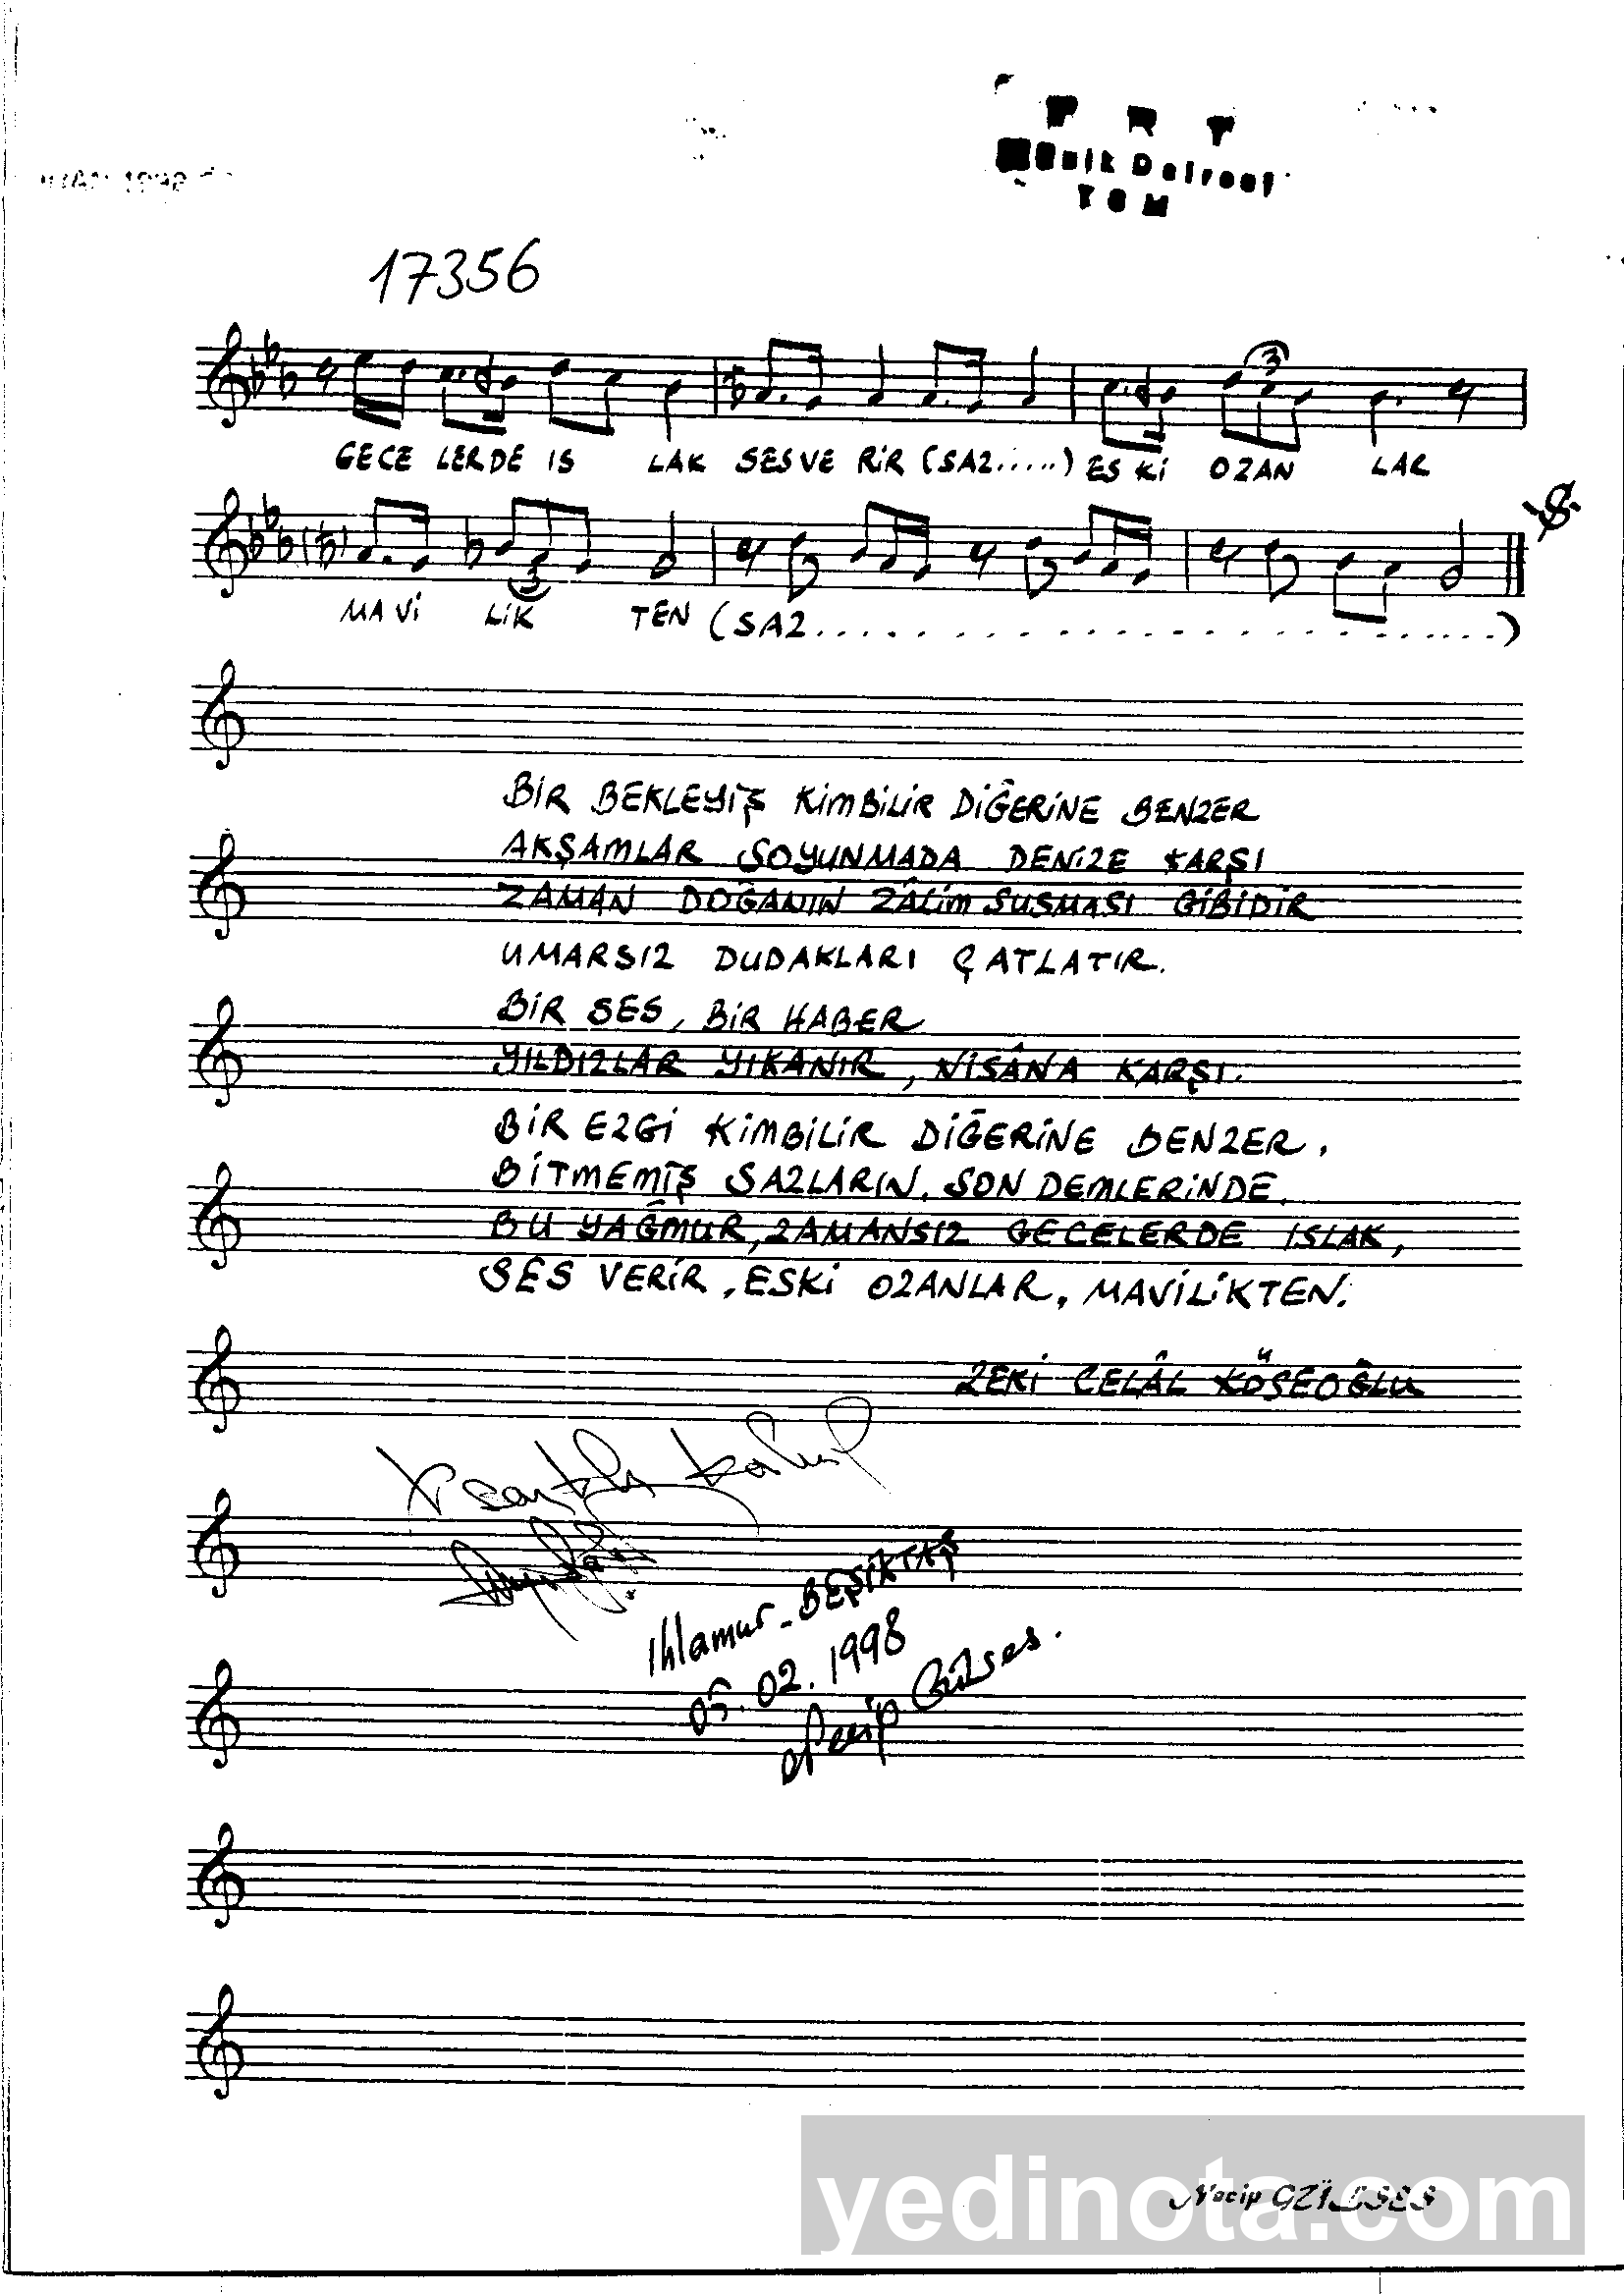 T R T
Müzik Dairesi
TSM
17356
3
GECE LERDE IS LAK SES VE RİR (SAZ.....) ES Kİ OZAN LAR
3
MA Vİ LİK TEN (SAZ......................)
BİR BEKLEYİŞ KİMBİLİR DİĞERİNE BENZER
AKŞAMLAR SOYUNMADA DENİZE KARŞI
ZAMAN DOĞANIN ZÂLİM SUSMASI GİBİDİR
UMARSIZ DUDAKLARI ÇATLATIR.
BİR SES, BİR HABER
YILDIZLAR YIKANIR, NİSÂNA KARŞI.
BİR EZGİ KİMBİLİR DİĞERİNE BENZER.
BİTMEMİŞ SAZLARIN, SON DEMLERİNDE.
BU YAĞMUR, ZAMANSIZ GECELERDE ISLAK,
SES VERİR, ESKİ OZANLAR, MAVİLİKTEN.
ZEKİ CELÂL KÖSEOĞLU
Ihlamur - BEŞİKTAŞ
05.02.1998
Necip Gülses.
Necip GÜLSES
yedinota.com